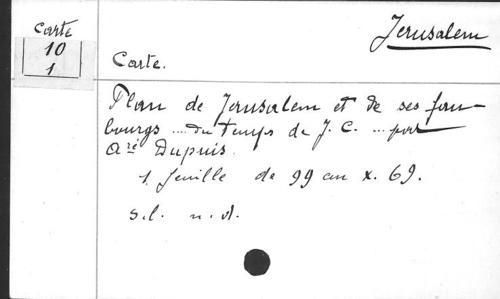 Carte
10
1
Jerusalem
Carte.
Plan de Jerusalem et de ses fau-
bourgs ... du temps de J. C. ... par
Aré Dupuis.
1 feuille de 99 cm x. 69.
s.l. n.d.